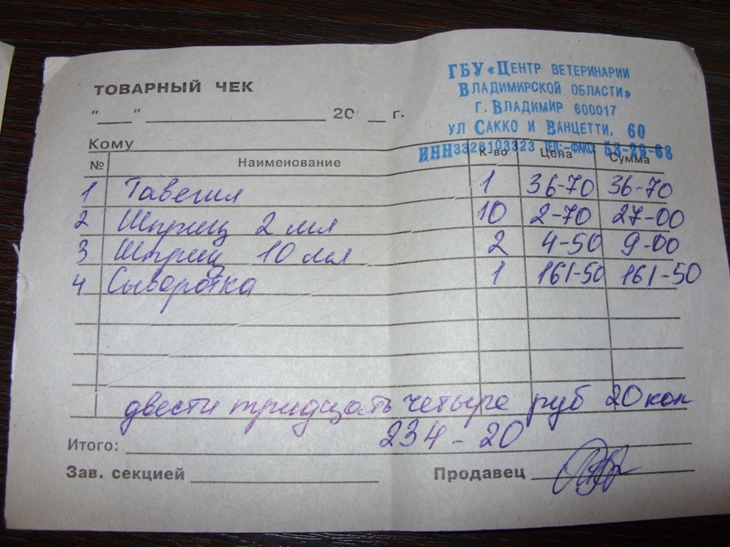 ГБУ «ЦЕНТР ВЕТЕРИНАРИИ
ВЛАДИМИРСКОЙ ОБЛАСТИ»
г. ВЛАДИМИР 600017
УЛ САККО И ВАНЦЕТТИ, 60
ИНН3328103323 ТЕЛ.-ФАКС
ТОВАРНЫЙ ЧЕК
"___" ________ 20 __ г.
Кому
№ Наименование К-во Цена Сумма
1 Тавегил 1 36-70 36-70
2 Шприц 2 мл 10 2-70 27-00
3 Шприц 10 мл 2 4-50 9-00
4 Сыворотка 1 161-50 161-50
двести тридцать четыре руб 20 коп
Итого: 234-20
Зав. секцией Продавец